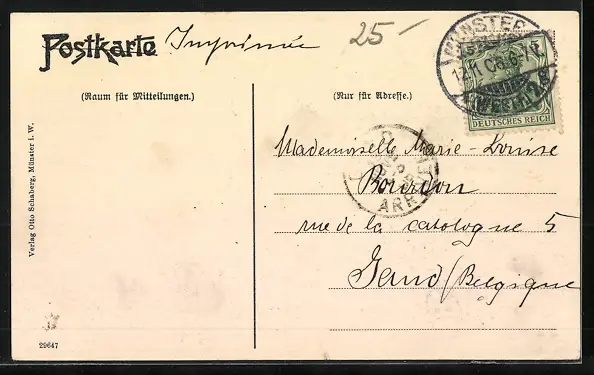 Postkarte Imprimée 25-
(Raum für Mitteilungen.)
(Nur für Adresse.)
MÜNSTER
(WESTF.)
DEUTSCHES REICH
Mademoiselle Marie-Louise
Bourdon
rue de la catalogne 5
Gand/Belgique
Verlag Otto Schaberg, Münster i. W.
29647